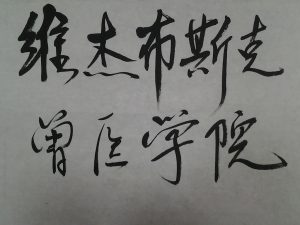 维杰布斯克
兽医学院